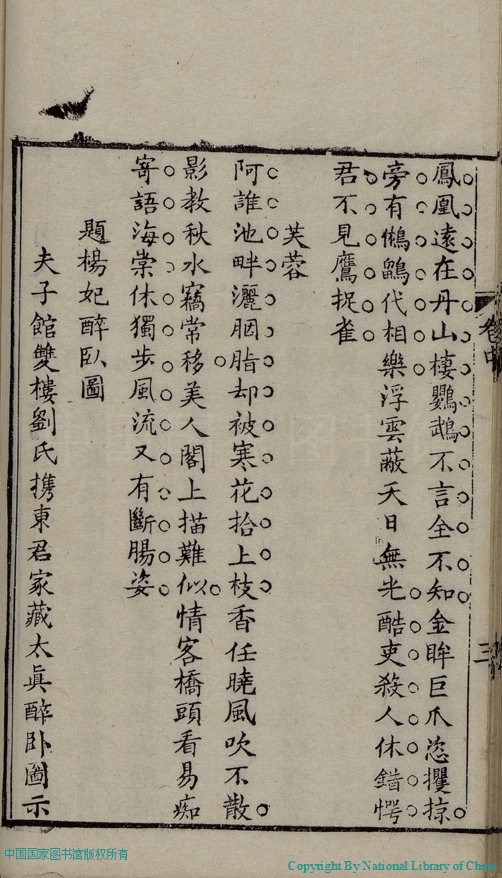 鳳凰遠在丹山棲鸚鵡不言全不知金眸巨爪恣攫掠
旁有鵂鶹代相樂浮雲蔽天日無光酷吏殺人休錯愕
君不見鷹捉雀
芙蓉
阿誰池畔灑胭脂却被寒花拾上枝香任曉風吹不散
影教秋水竊常移美人閣上描難似情客橋頭看易痴
寄語海棠休獨步風流又有斷腸姿
題楊妃醉臥圖
夫子館雙樓劉氏携東君家藏太眞醉卧圖示
卷中
三
中国国家图书馆版权所有
Copyright By National Library of China